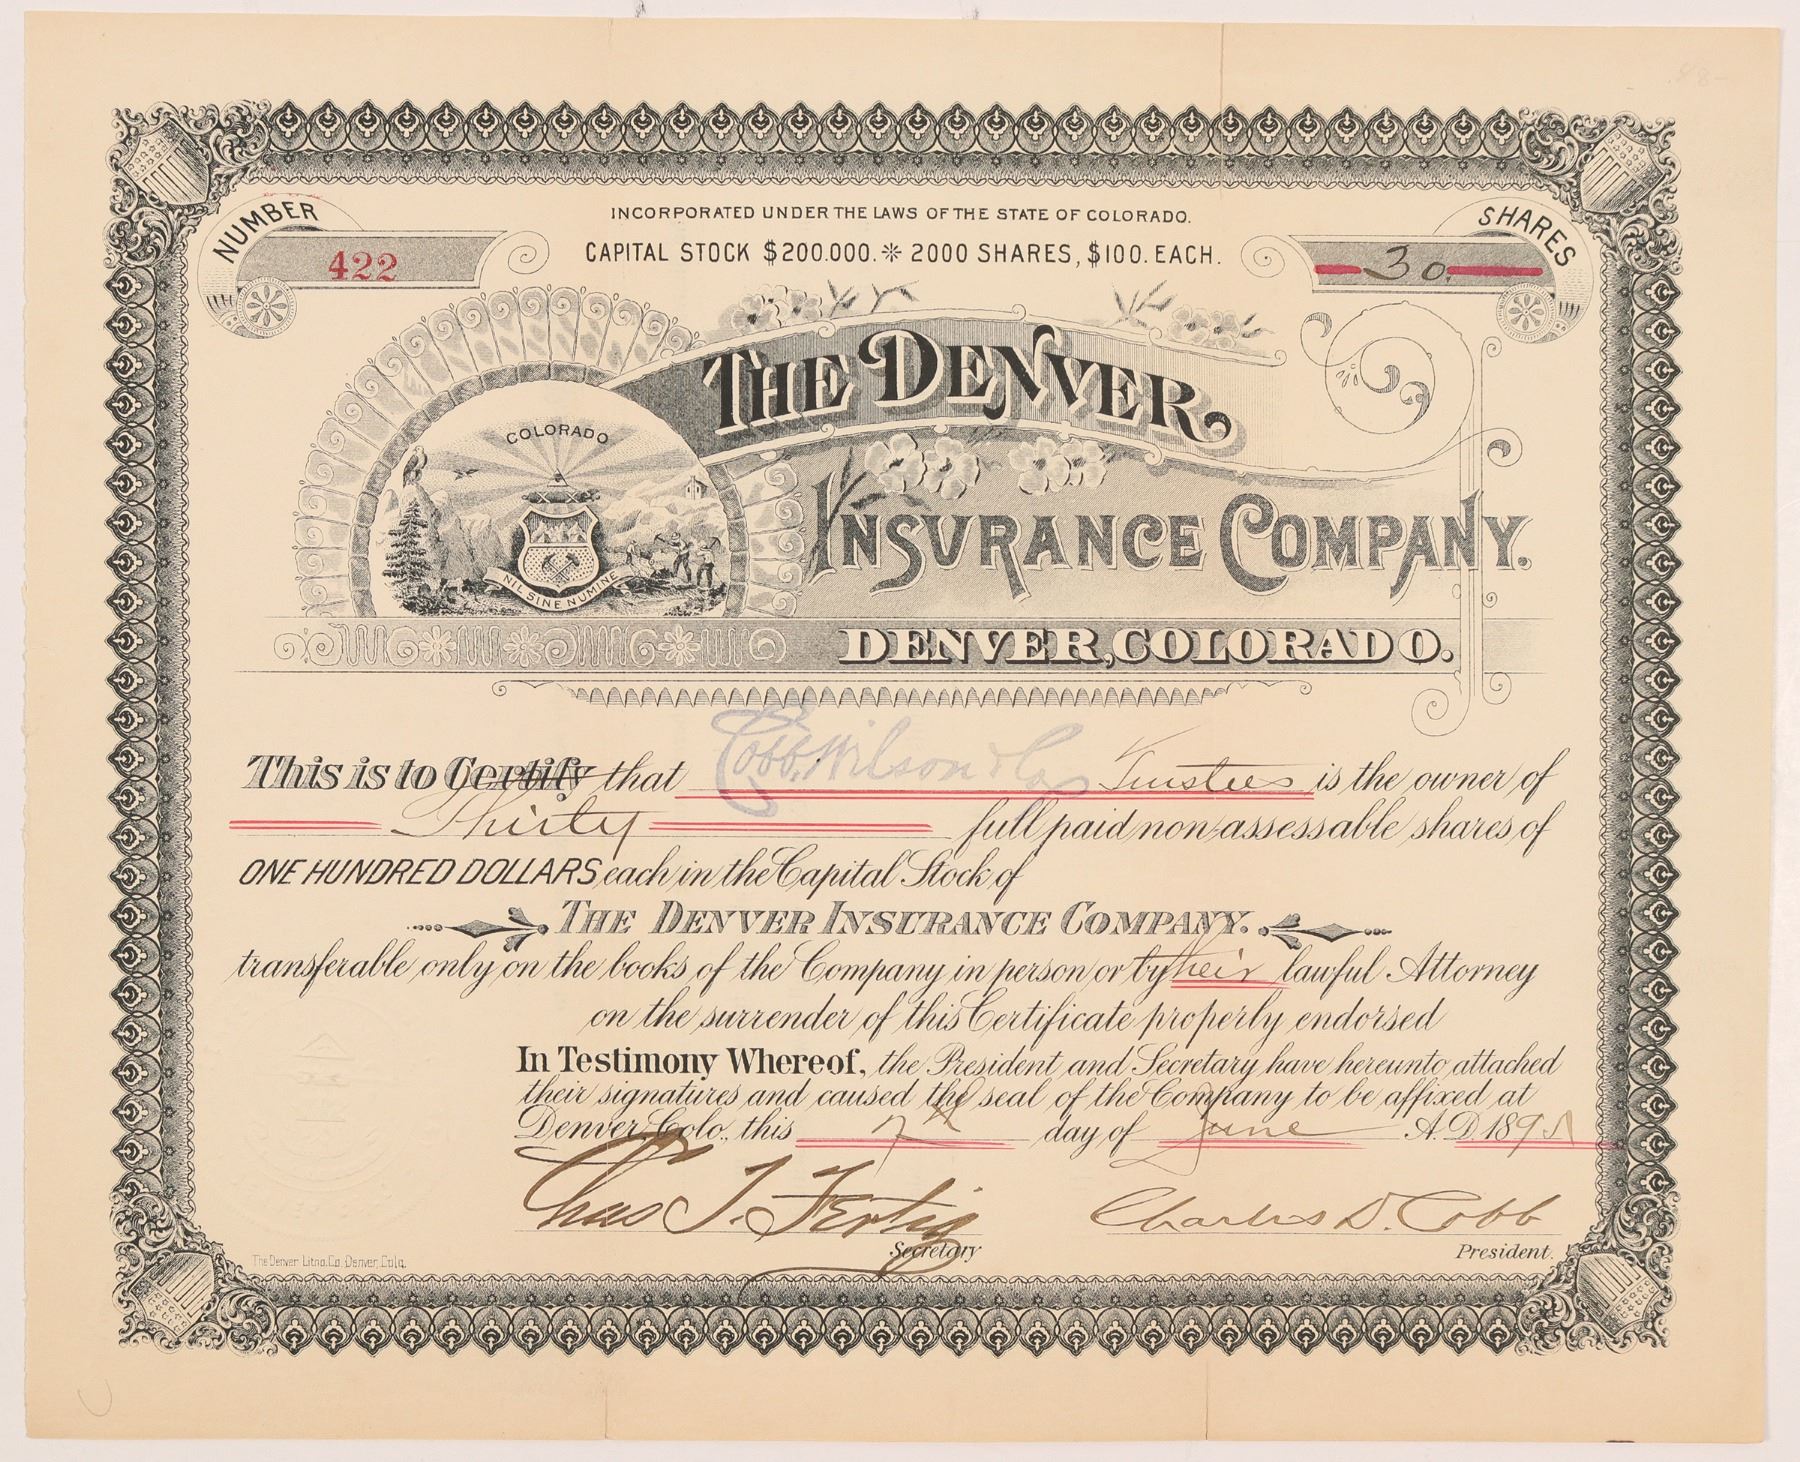 NUMBER
422
INCORPORATED UNDER THE LAWS OF THE STATE OF COLORADO.
CAPITAL STOCK $200.000. ※ 2000 SHARES, $100. EACH.
SHARES
30.
THE DENVER
INSURANCE COMPANY.
COLORADO
NIL SINE NUMINE
DENVER, COLORADO.
This is to Certify that Cobb, Wilson & Co Trustees is the owner of
Thirty full paid non-assessable shares of
ONE HUNDRED DOLLARS each in the Capital Stock of
THE DENVER INSURANCE COMPANY.
transferable only on the books of the Company in person or by their lawful Attorney
on the surrender of this Certificate properly endorsed
In Testimony Whereof, the President and Secretary have hereunto attached
their signatures and caused the seal of the Company to be affixed at
Denver, Colo., this 7th day of June A.D. 189
Chas J. Fertig Charles D. Cobb
Secretary President.
The Denver Litho. Co. Denver, Colo.